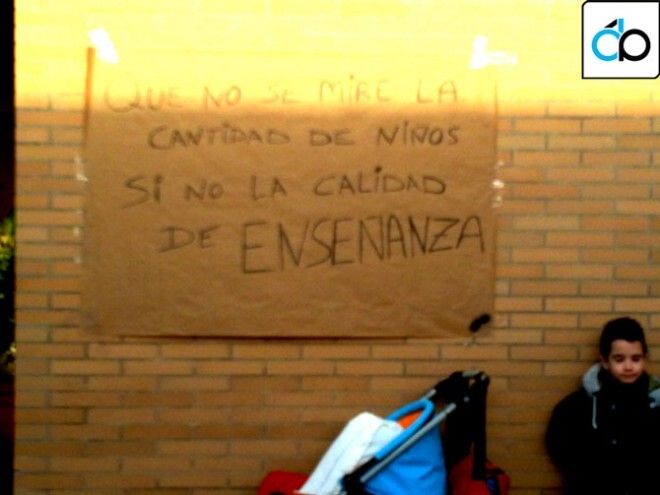 QUE NO SE MIRE LA
CANTIDAD DE NIÑOS
SI NO LA CALIDAD
DE ENSEÑANZA